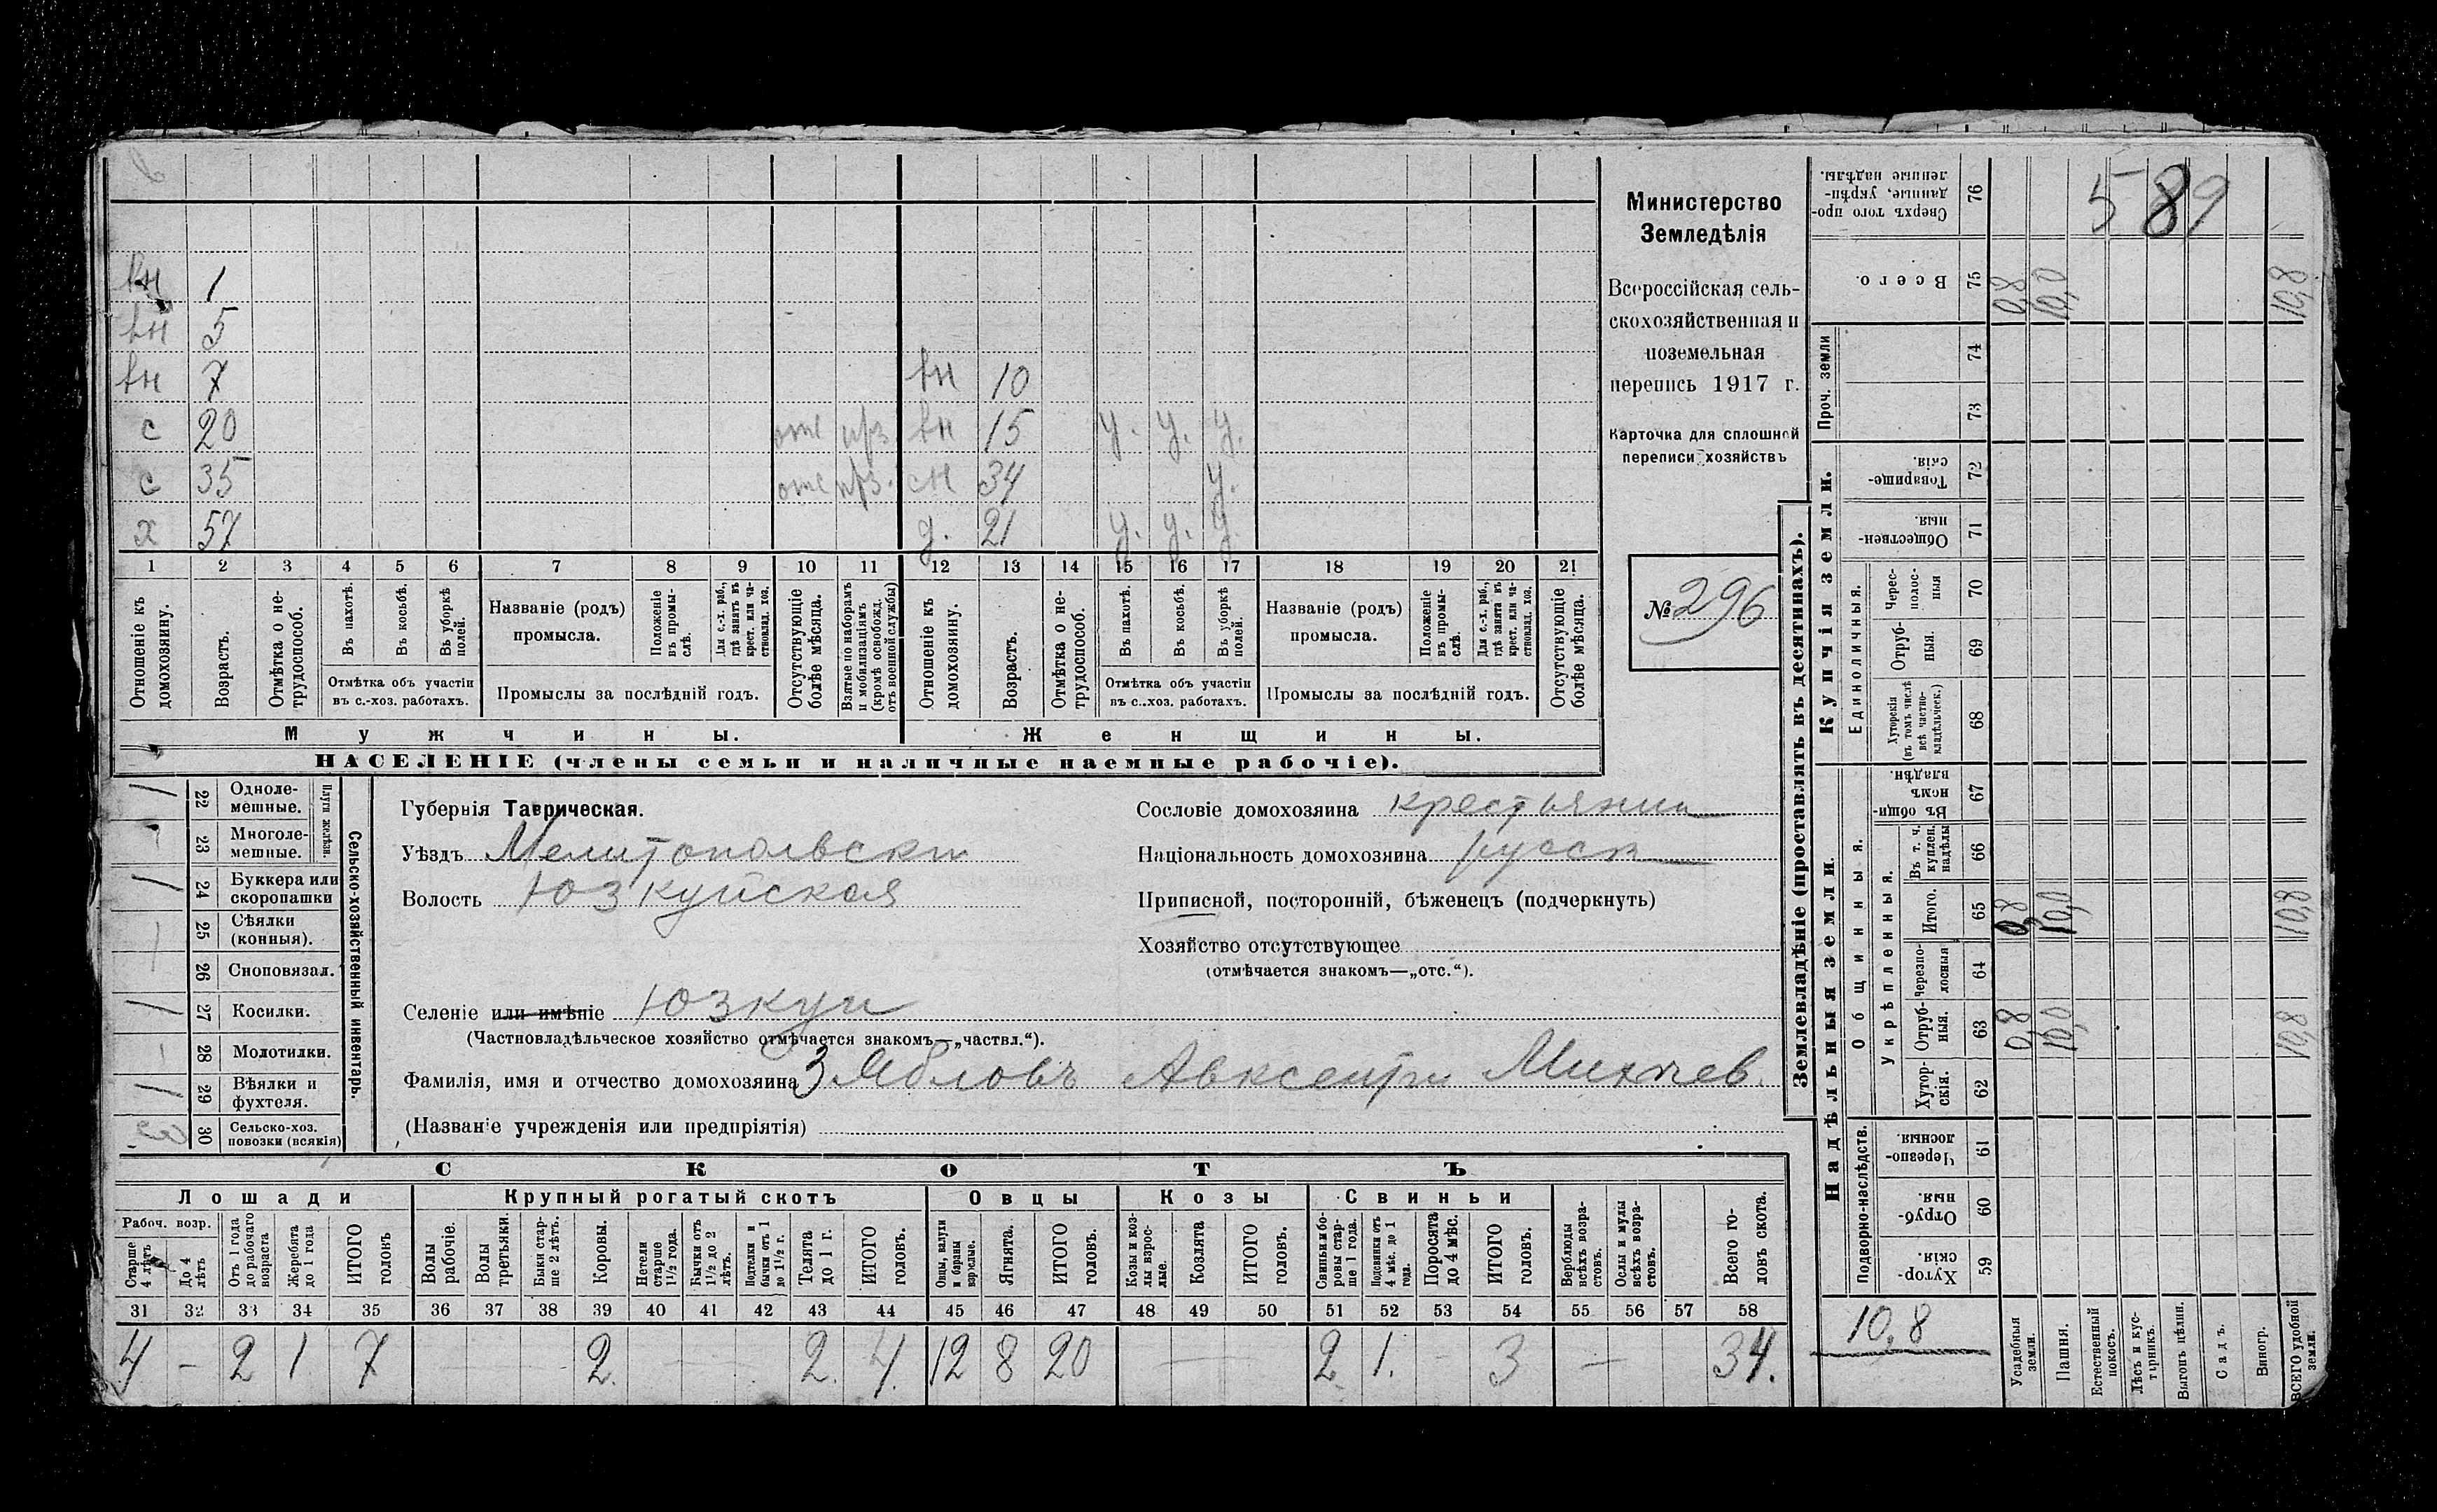 589
вн 1
вн 5
вн 7 вн 10
с 20 отс вн 15 у. у. у.
с 35 отс сн 34 у.
х 57 д. 21 у. у. у.
1 2 3 4 5 6 7 8 9 10 11 12 13 14 15 16 17 18 19 20 21
Отношеніе къ домохозяину.
Возрастъ.
Отмѣтка о нетрудоспособ.
Въ пахотѣ.
Въ косьбѣ.
Въ уборкѣ полей.
Отмѣтка объ участіи
въ с.-хоз. работахъ.
Названіе (родъ)
промысла.
Положеніе въ промыслѣ.
Для с.-х. раб., гдѣ занятъ въ крест. или частновлад. хоз.
Промыслы за послѣдній годъ.
Отсутствующіе болѣе мѣсяца.
Взятые по наборамъ и мобилизаціямъ (кромѣ освобожд. отъ военной службы)
Отношеніе къ домохозяину.
Возрастъ.
Отмѣтка о нетрудоспособ.
Въ пахотѣ.
Въ косьбѣ.
Въ уборкѣ полей.
Отмѣтка объ участіи
въ с.-хоз. работахъ.
Названіе (родъ)
промысла.
Положеніе въ промыслѣ.
Для с.-х. раб., гдѣ занята въ крест. или частновлад. хоз.
Промыслы за послѣдній годъ.
Отсутствующіе болѣе мѣсяца.
Мужчины. Женщины.
НАСЕЛЕНІЕ (члены семьи и наличные наемные рабочіе).
Министерство
Земледѣлія
Всероссійская сель-
скохозяйственная и
поземельная
перепись 1917 г.
Карточка для сплошной
переписи хозяйствъ
№ 296
Сельско-хозяйственный инвентарь.
Плуги желѣзн.
1 22 Одноле-
мешные.
23 Многоле-
мешные.
1 24 Буккера или
скоропашки
1 25 Сѣялки
(конныя).
26 Сноповязал.
1 27 Косилки.
28 Молотилки.
1 29 Вѣялки и
фухтеля.
30 Сельско-хоз.
повозки (всякія)
Губернія Таврическая.
Уѣздъ Мелитопольскій
Волость Юзкуйская
Селеніе или имѣніе Юзкуи
(Частновладѣльческое хозяйство отмѣчается знакомъ—„частвл.“).
Фамилія, имя и отчество домохозяина Зябловъ Авксентій Михеев.
(Названіе учрежденія или предпріятія)
Сословіе домохозяина крестьянин
Національность домохозяина русск
Приписной, посторонній, бѣженецъ (подчеркнуть)
Хозяйство отсутствующее
(отмѣчается знакомъ—„отс.“).
СКОТЪ
Лошади Крупный рогатый скотъ Овцы Козы Свиньи
Рабоч. возр.
Старше 4 лѣтъ
До 4 лѣтъ
Отъ 1 года до рабочаго возраста
Жеребята до 1 года
ИТОГО головъ
Волы рабочіе.
Волы третьяки.
Быки старше 2 лѣтъ.
Коровы.
Нетели старше 1½ года.
Бычки отъ 1½ до 2 лѣтъ.
Подтелки и бычки отъ 1 до 1½ г.
Телята до 1 г.
ИТОГО головъ.
Овцы, валухи и бараны взрослые.
Ягнята.
ИТОГО головъ.
Козы и козлы взрослые.
Козлята
ИТОГО головъ.
Свиньи и боровы старше 1 года.
Подсвинки отъ 4 мѣс. до 1 года.
Поросята до 4 мѣс.
ИТОГО головъ.
Верблюды всѣхъ возрастовъ.
Ослы и мулы всѣхъ возрастовъ.
Всего головъ скота.
31 32 33 34 35 36 37 38 39 40 41 42 43 44 45 46 47 48 49 50 51 52 53 54 55 56 57 58
4 - 2 1 7 2. 2. 4. 12 8 20 — 2 1. - 3 — 34.
Землевладѣніе (проставлять въ десятинахъ).
Сверхъ того проданные, укрѣпленные надѣлы. 76
Всего. 75 0,8 10,0 10,8
Проч. земли
74
73
Купчія земли.
Товарищескія. 72
Общественныя. 71
Единоличныя.
Чересполосныя 70
Отрубныя. 69
Хуторскія (въ томъ числѣ всѣ частновладѣльческ.) 68
Надѣльныя земли.
Общинныя.
Въ общинномъ владѣн. 67
Укрѣпленныя.
Въ т. ч. куплен. надѣлы 66
Итого. 65 0,8 10,0 10,8
Черезполосныя 64
Отрубныя. 63 0,8 10,0 10,8
Хуторскія. 62
Подворно-наслѣдств.
Черезполосныя. 61
Отрубныя. 60
Хуторскія. 59
10,8
Усадебныя земли.
Пашня.
Естественный покосъ.
Лѣсъ и кустарникъ.
Выгонъ цѣлин.
Садъ.
Виногр.
ВСЕГО удобной земли.